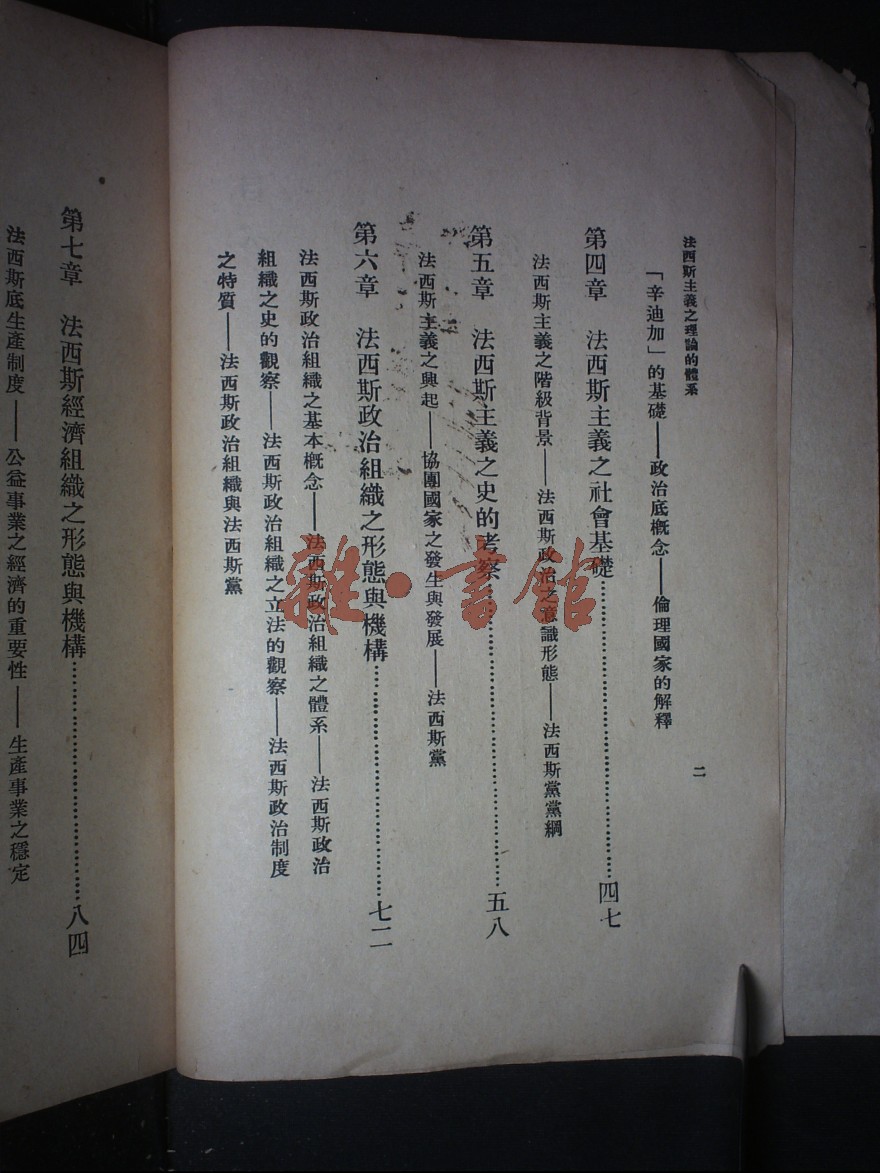 法西斯主義之理論的體系
二
「辛迪加」的基礎——政治底概念——倫理國家的解釋
第四章 法西斯主義之社會基礎……四七
法西斯主義之階級背景——法西斯政治之意識形態——法西斯黨黨綱
第五章 法西斯主義之史的考察……五八
法西斯主義之興起——協團國家之發生與發展——法西斯黨
第六章 法西斯政治組織之形態與機構……七二
法西斯政治組織之基本概念——法西斯政治組織之體系——法西斯政治
組織之史的觀察——法西斯政治組織之立法的觀察——法西斯政治制度
之特質——法西斯政治組織與法西斯黨
第七章 法西斯經濟組織之形態與機構……八四
法西斯底生產制度——公益事業之經濟的重要性——生產事業之穩定
雜·書館